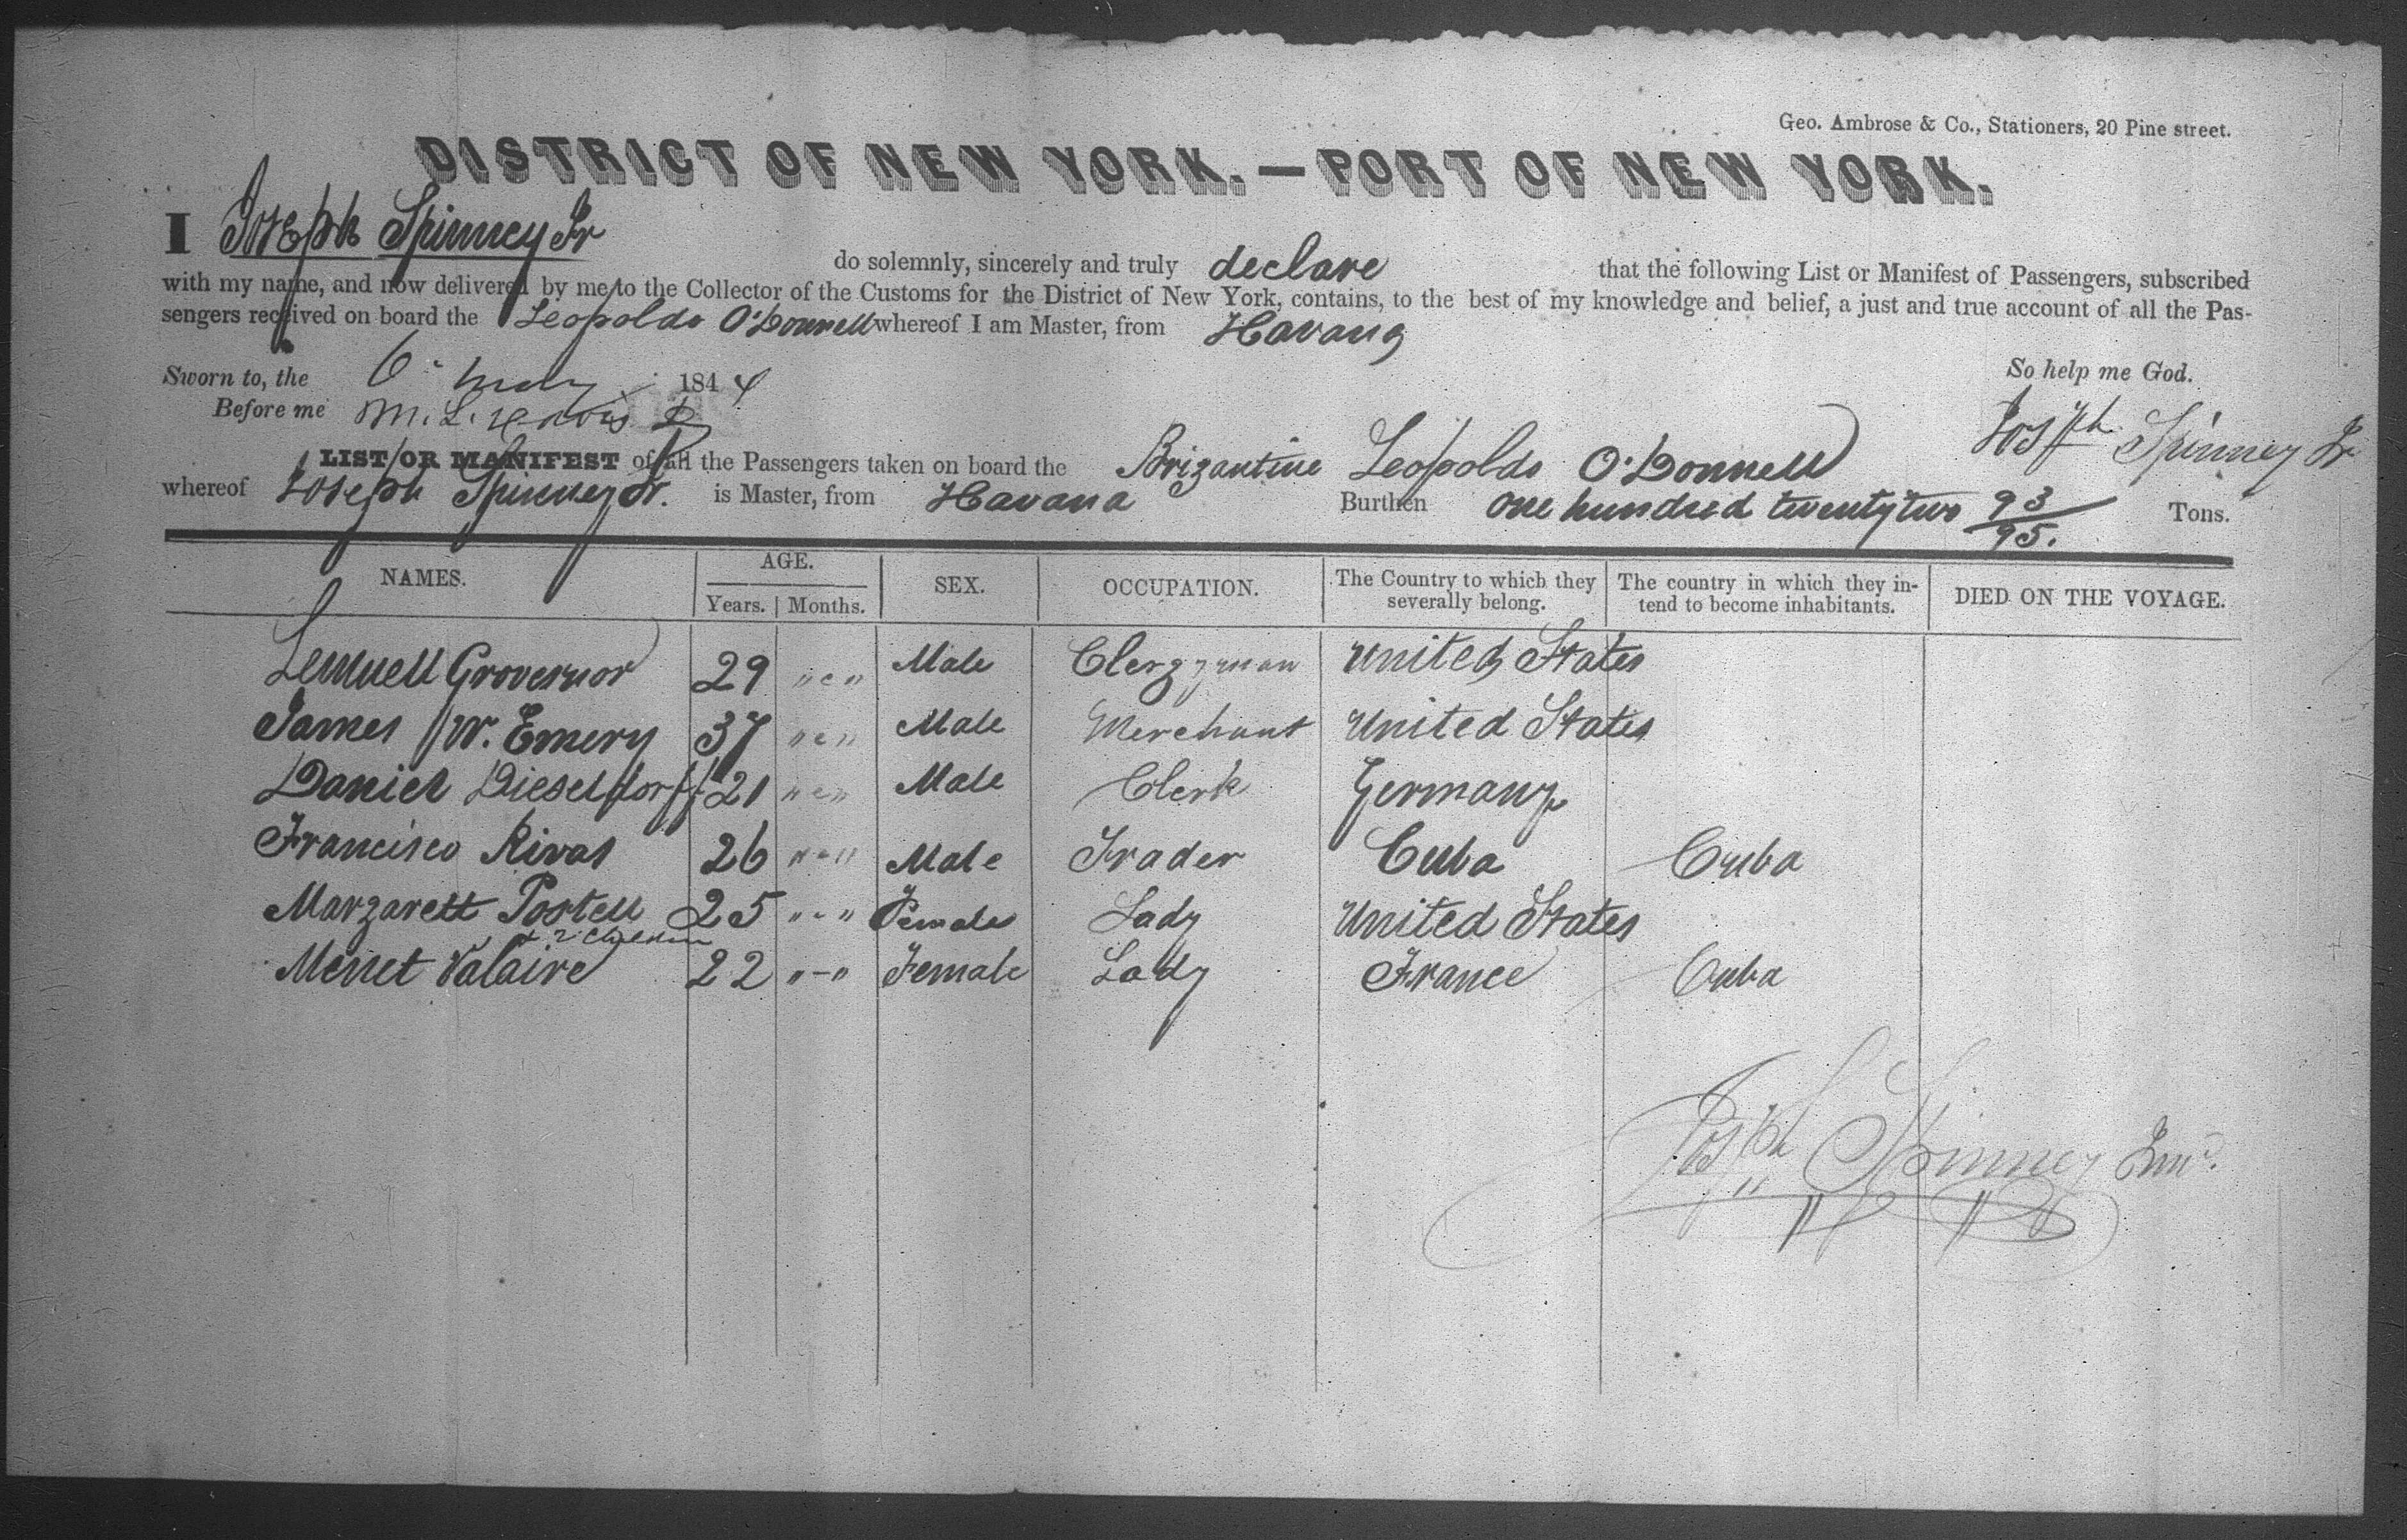 Geo. Ambrose & Co., Stationers, 20 Pine street.
DISTRICT OF NEW YORK.—PORT OF NEW YORK.
I Joseph Spinney Jr do solemnly, sincerely and truly declare that the following List or Manifest of Passengers, subscribed
with my name, and now delivered by me to the Collector of the Customs for the District of New York, contains, to the best of my knowledge and belief, a just and true account of all the Pas-
sengers received on board the Leopoldo O'Donnell whereof I am Master, from Havana
Sworn to, the 6 May 1844 So help me God.
Before me M. L. Joseph Spinney Jr
LIST OR MANIFEST of all the Passengers taken on board the Brigantine Leopoldo O'Donnell
whereof Joseph Spinney Jr. is Master, from Havana Burthen one hundred twenty two 93/95. Tons.
NAMES. AGE. Years. Months. SEX. OCCUPATION. The Country to which they severally belong. The country in which they in- tend to become inhabitants. DIED ON THE VOYAGE.
Lemuell Grovernor 29 Male Clergyman United States
James W. Emery 37 Male Merchant United States
Daniel Dieseldorff 21 Male Clerk Germany
Francisco Rivas 26 Male Trader Cuba Cuba
Margarett Postell 25 Female Lady United States
& 2 children
Menet Valaire 22 Female Lady France Cuba
Joseph Spinney Junr.